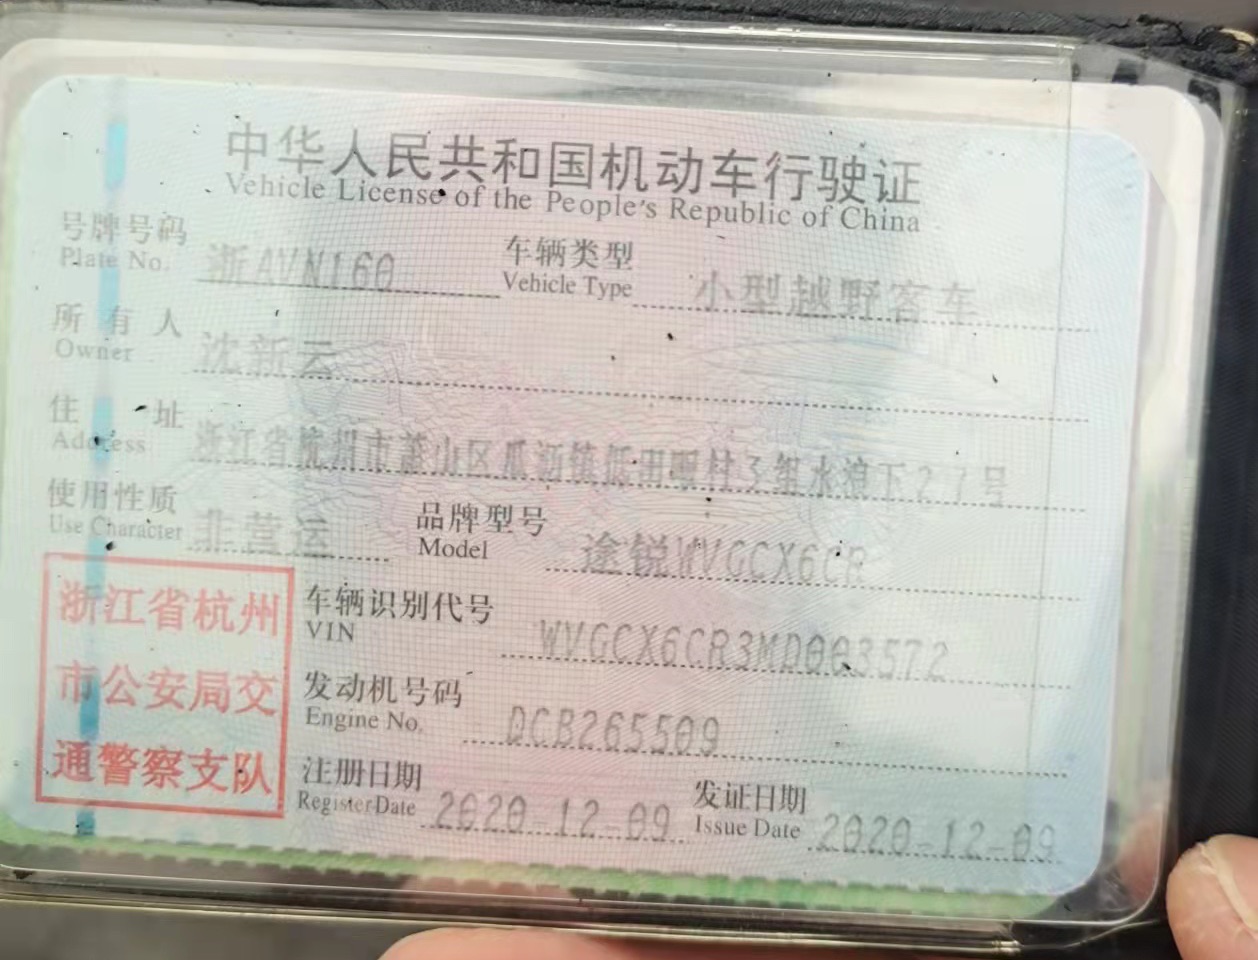 中华人民共和国机动车行驶证
Vehicle License of the People's Republic of China
号牌号码 浙AVN160 车辆类型 小型越野客车
Plate No. Vehicle Type
所有人 沈新云
Owner
住址 浙江省杭州市萧山区瓜沥镇低田畈村3组水浪下27号
Address
使用性质 非营运 品牌型号 途锐WVGCX6CR
Use Character Model
浙江省杭州
市公安局交
通警察支队
车辆识别代号 WVGCX6CR3MD003572
VIN
发动机号码 DCB265509
Engine No.
注册日期 2020-12-09 发证日期 2020-12-09
Register Date Issue Date